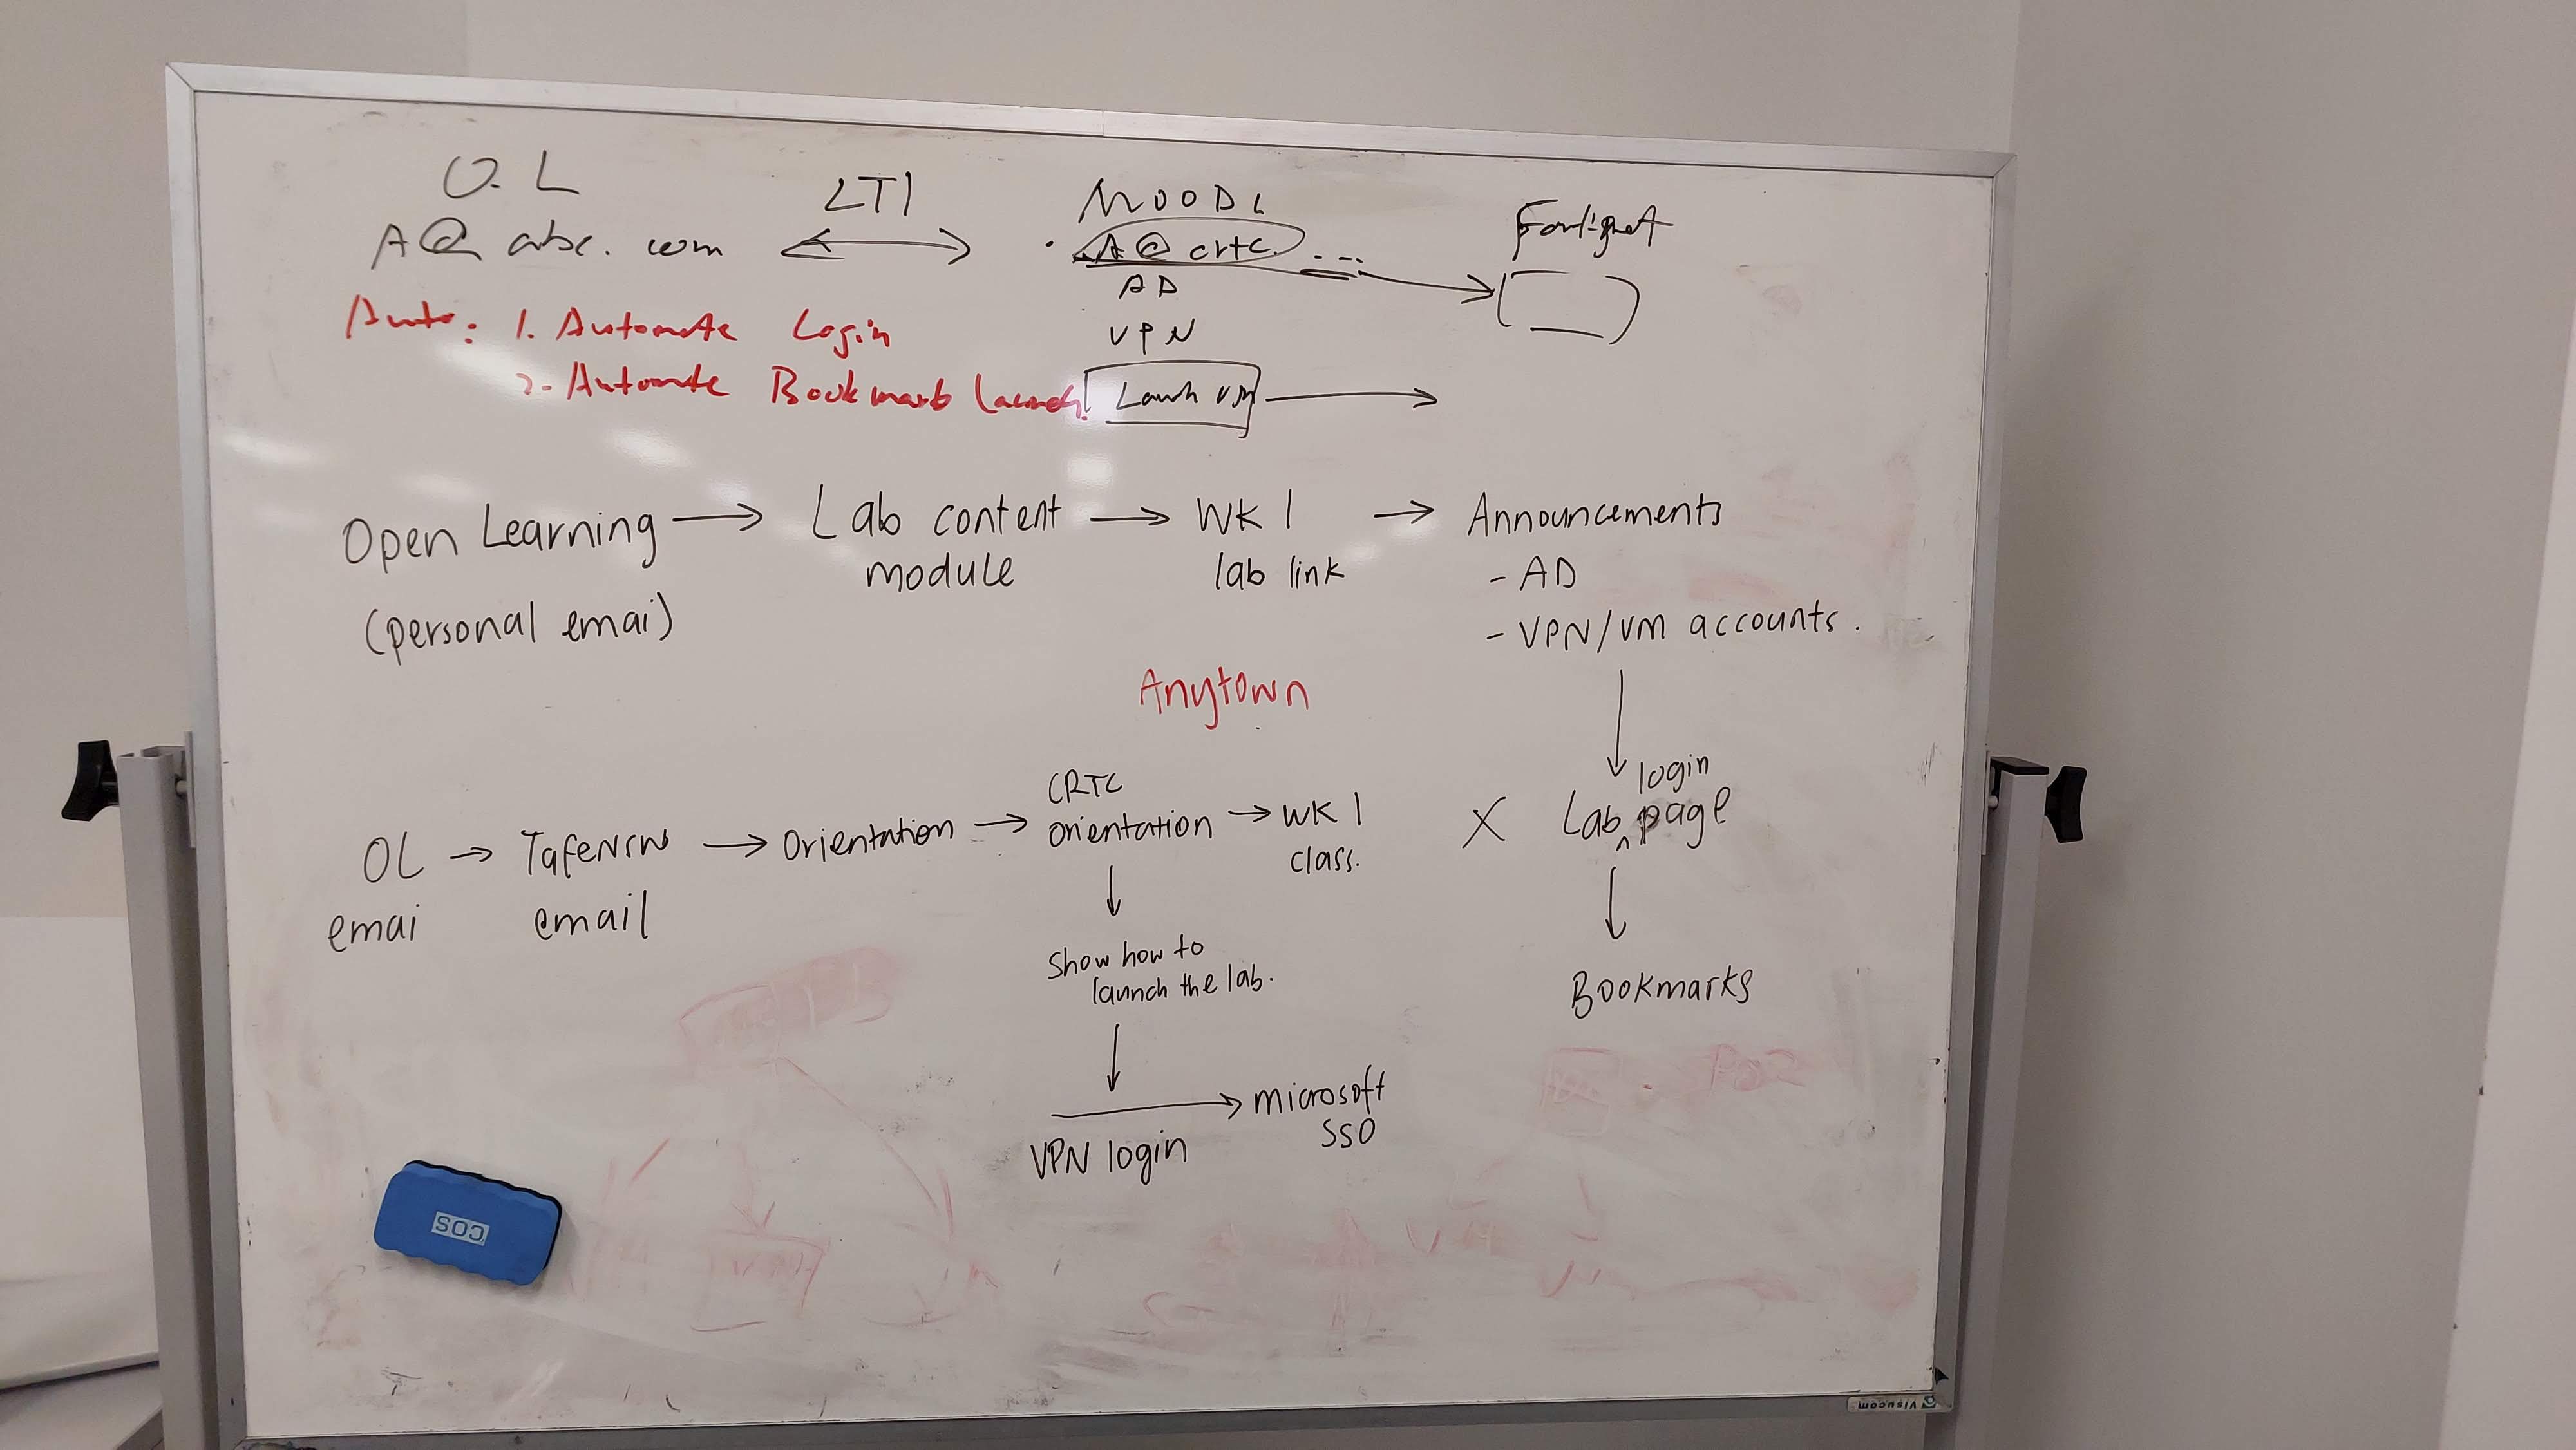 O.L
LTI
MOODL
Fortignet
A@ abc. com
A@ crtc. ...
AD
VPN
Auto: 1. Automate Login
2. Automate Bookmark Launch
Launh VM
Open Learning
Lab content
module
WK 1
lab link
Announcements
- AD
- VPN/VM accounts.
(personal emai)
Anytown
OL
emai
TafeNSW
email
Orientation
CRTC
orientation
WK 1
class.
X
login
Lab ^ page
Show how to
launch the lab.
Bookmarks
VPN login
microsoft
SSO
COS
Visucom